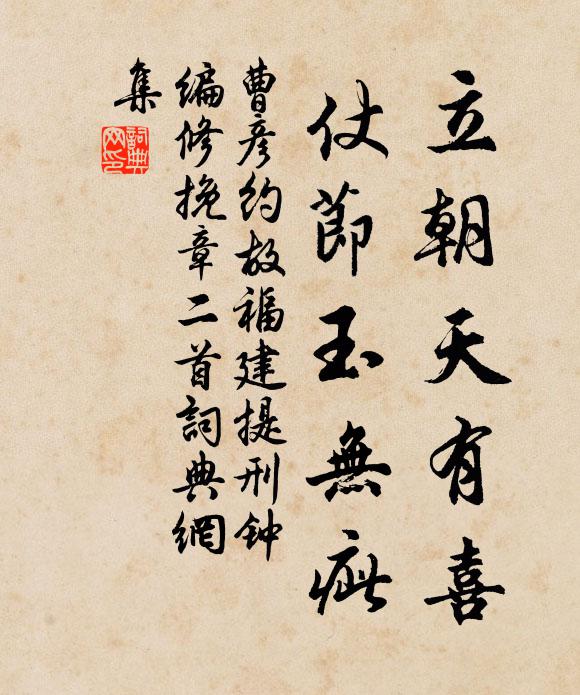 立朝天有喜
仗節玉無疵
曹彦約故福建提刑钟
编修挽章二首詞典網
集
詞典网印